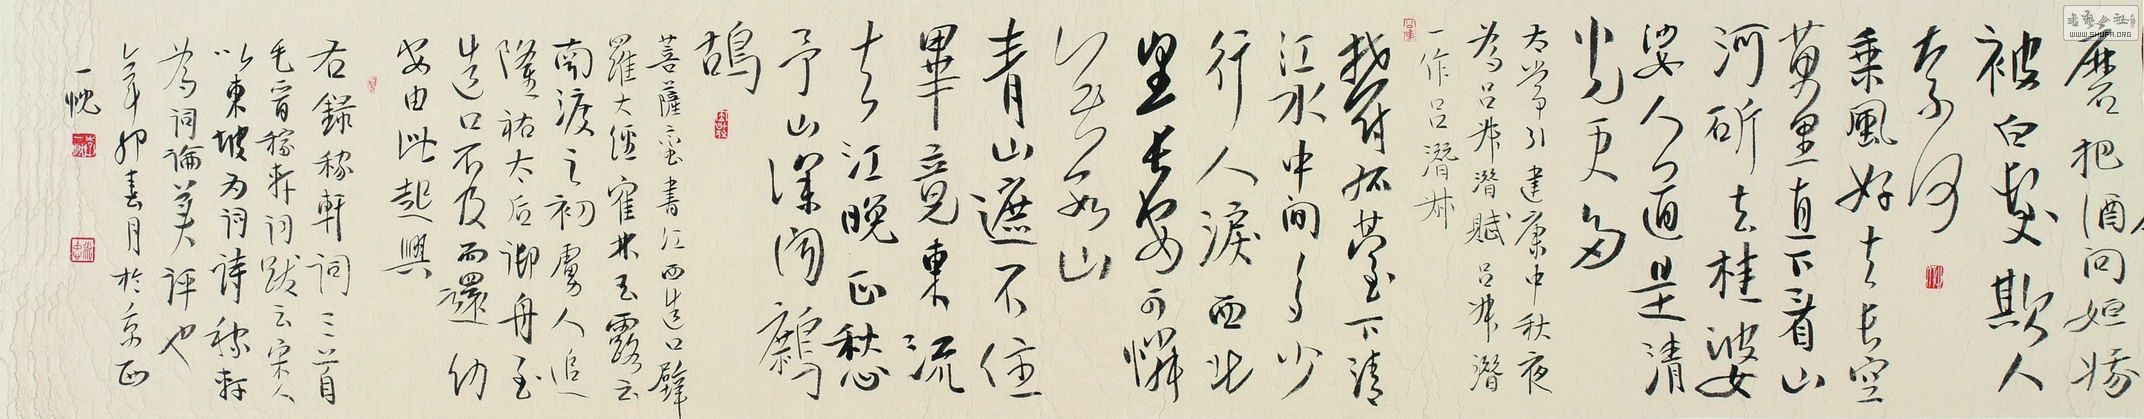 磨把酒問姮娥
被白髮欺人
奈何
乘風好去長空
萬里直下看山
河斫去桂婆
娑人道是清
光更多
太常引建康中秋夜
為呂叔潛賦呂叔潛
一作呂潛叔
鬱孤臺下清
江水中間多少
行人淚西北
望長安可憐
無數山
青山遮不住
畢竟東流
去江晚正愁
予山深聞鷓
鴣
菩薩蠻書江西造口壁
羅大經鶴林玉露云
南渡之初虜人追
隆祐太后御舟至
造口不及而還幼
安由此起興
右錄稼軒詞三首
毛晉稼軒詞跋云宋人
以東坡為詞詩稼軒
為詞論善評也
辛卯春月於京西
一
WWW.SHUFA.ORG